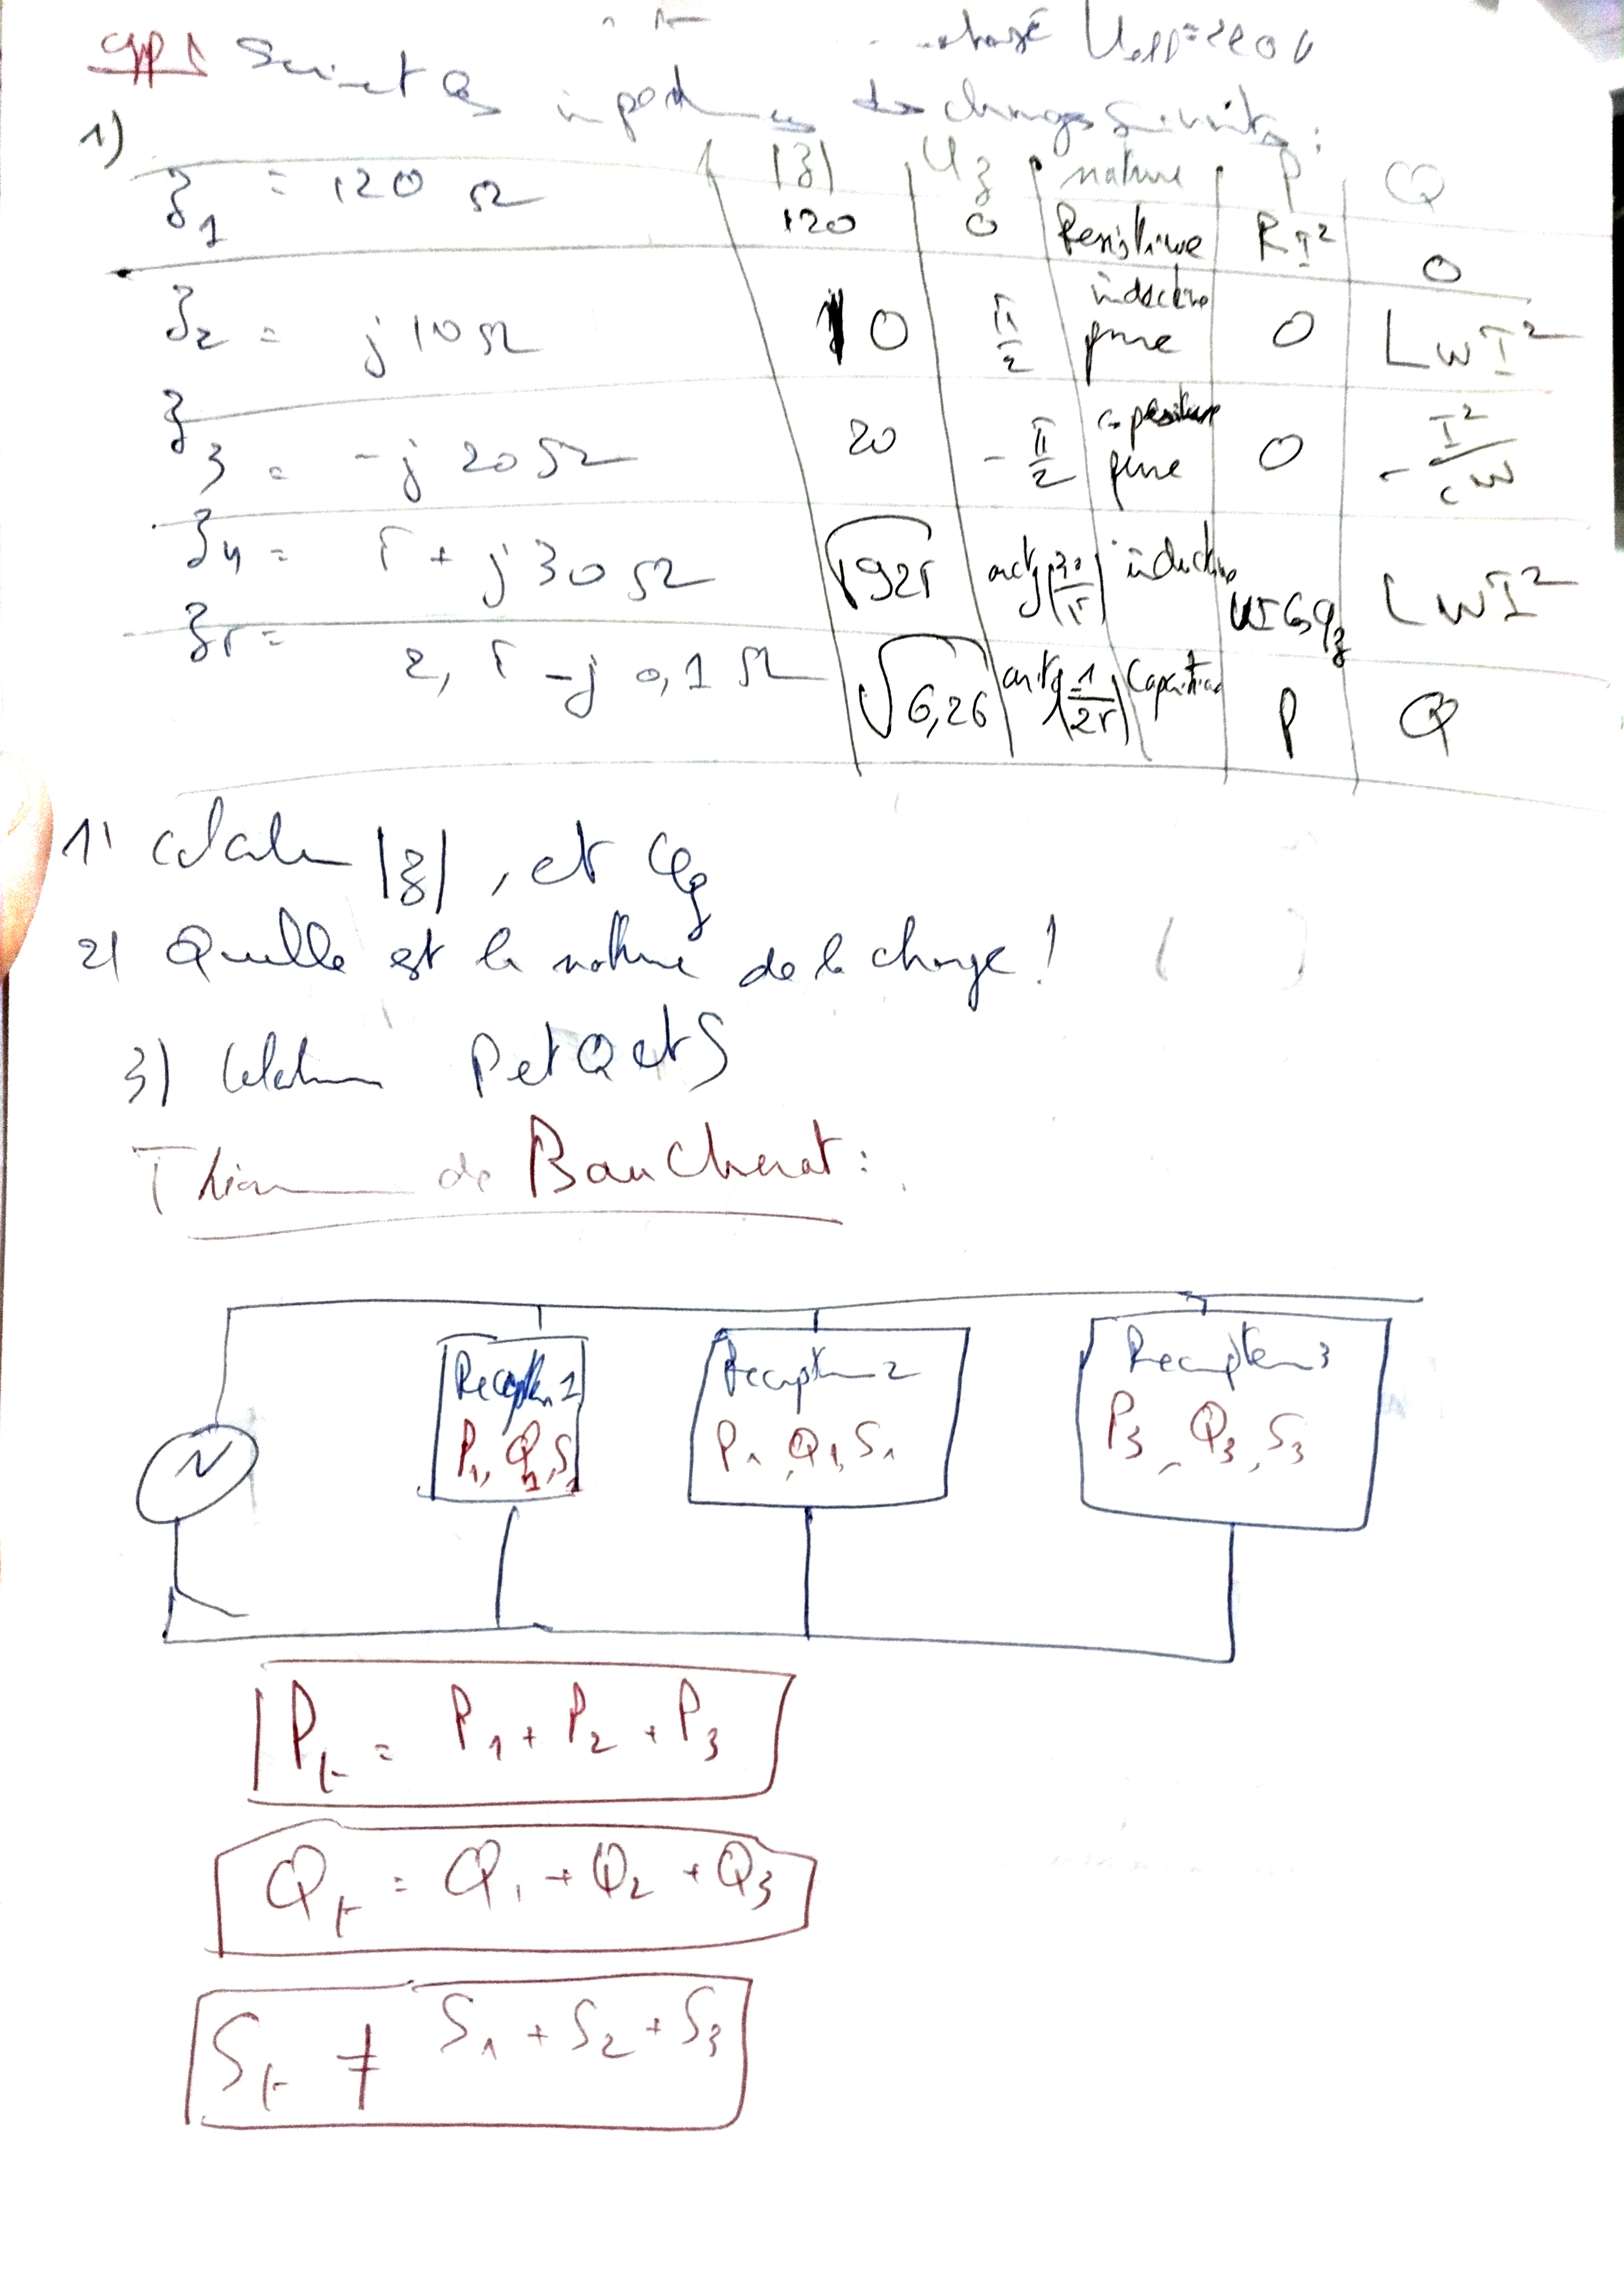 Soient les impedances des charges suivantes :
Ueff = 220 V
1)
|z| φz nature P Q
z1 = 120 Ω 120 0 Resistive RI² 0
z2 = j 10 Ω 10 π/2 inductive pure 0 LwI²
z3 = -j 20 Ω 20 -π/2 capacitive pure 0 - I²/cw
z4 = 5 + j 30 Ω √925 arctg(30/5) inductive UI Cos φz LwI²
z5 = 2,5 - j 0,1 Ω √6,26 arctg(-1/25) Capacitive P Q
1) Calculer |z|, et φz
2) Quelle est la nature de la charge !
3) Calculer P et Q et S
de Boucherot :
Recepteur 1
P1, Q1, S1
Recepteur 2
P1, Q1, S1
Recepteur 3
P3, Q3, S3
Pt = P1 + P2 + P3
Qt = Q1 + Q2 + Q3
St ≠ S1 + S2 + S3